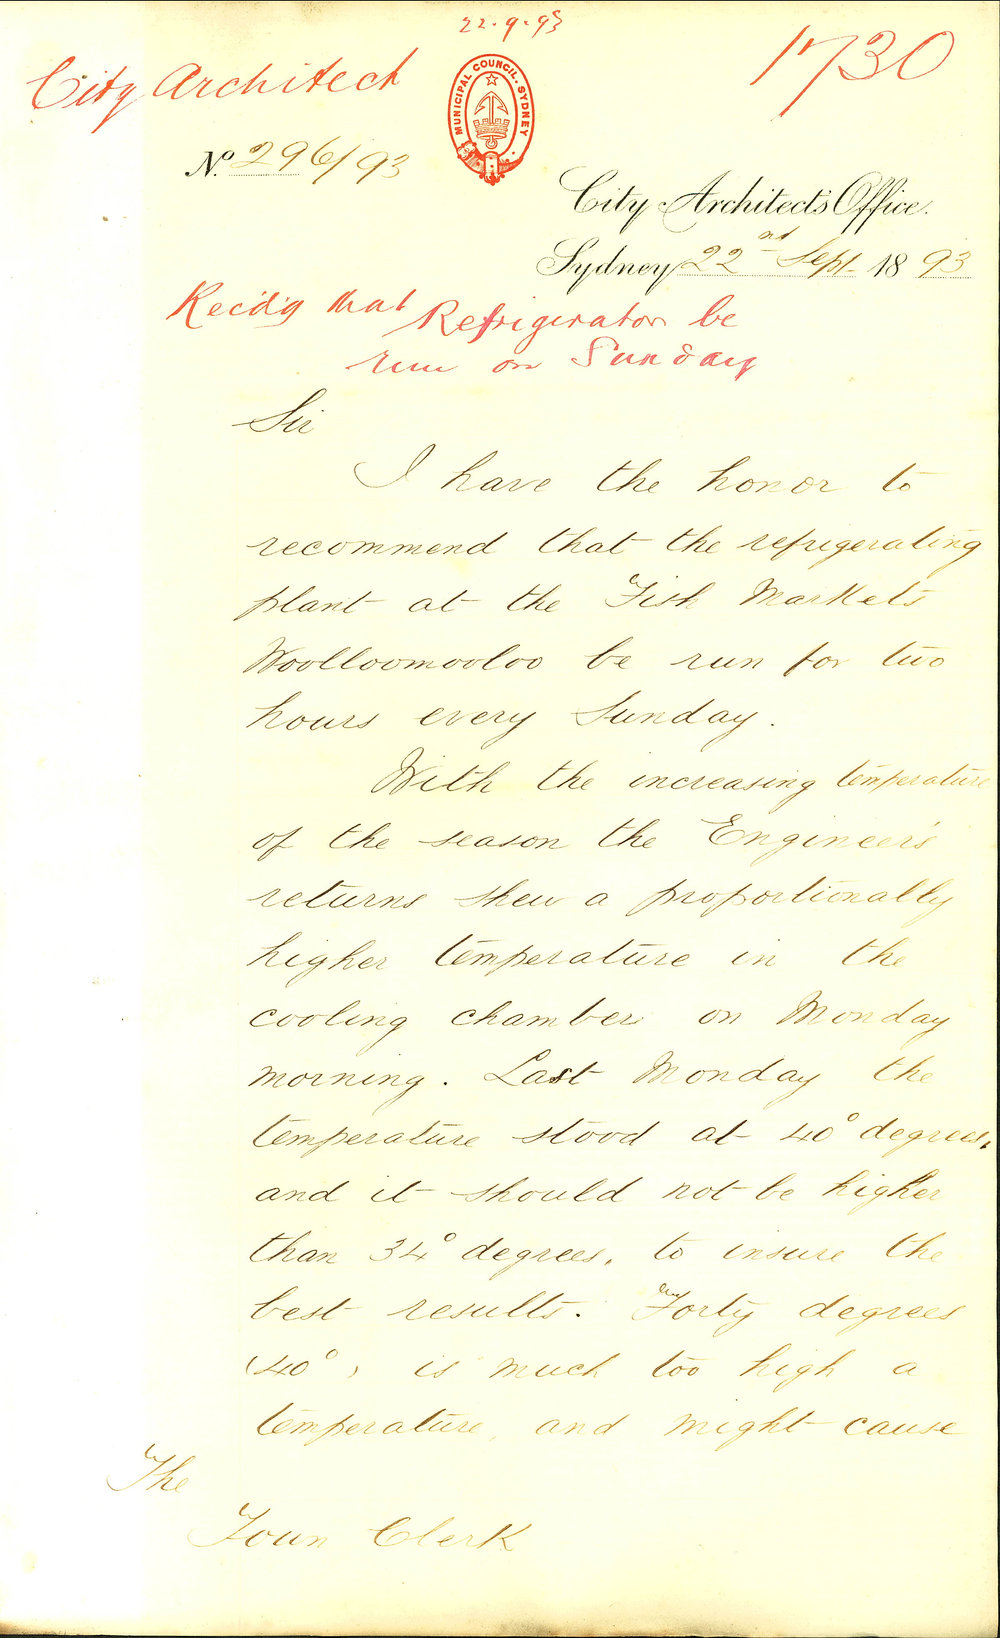 22.9.93
City Architect
1730
MUNICIPAL COUNCIL. SYDNEY
No. 296/93
City Architect's Office.
Sydney 22nd Sept. 1893
Rec'd'g that Refrigerator be
run on Sunday
Sir
I have the honor to
recommend that the refrigerating
plant at the Fish Markets
Woolloomooloo be run for two
hours every Sunday.
With the increasing temperature
of the season the Engineer's
returns shew a proportionally
higher temperature in the
cooling chamber on Monday
morning. Last Monday the
temperature stood at 40° degrees,
and it should not be higher
than 34° degrees, to insure the
best results. Forty degrees
(40°) is much too high a
temperature, and might cause
The
Town Clerk